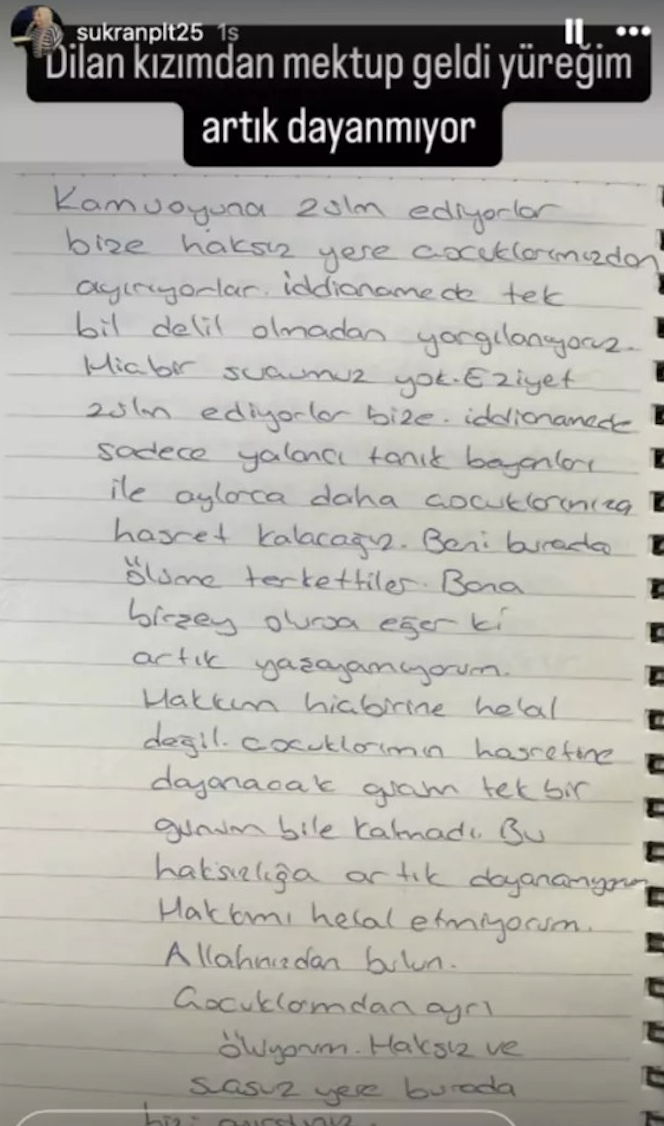 sukranplt25 1s
Dilan kızımdan mektup geldi yüreğim
artık dayanmıyor
Kamuoyuna zulm ediyorlar
bize haksız yere çocuklarımızdan
ayırıyorlar. iddianamede tek
bil delil olmadan yargılanıyoruz.
Hiçbir suçumuz yok. Eziyet
zulm ediyorlar bize. iddianamede
sadece yalancı tanık beyanları
ile aylarca daha çocuklarımıza
hasret kalacağız. Beni burada
ölüme terkettiler. Bana
birşey olursa eğer ki
artık yaşayamıyorum.
Hakkım hiçbirine helal
değil. çocuklarımın hasretine
dayanacak gücüm tek bir
günüm bile kalmadı. Bu
haksızlığa artık dayanamıyorum
Hakkımı helal etmiyorum.
Allahınızdan bulun.
Çocuklarımdan ayrı
ölüyorum. Haksız ve
suçsuz yere burada